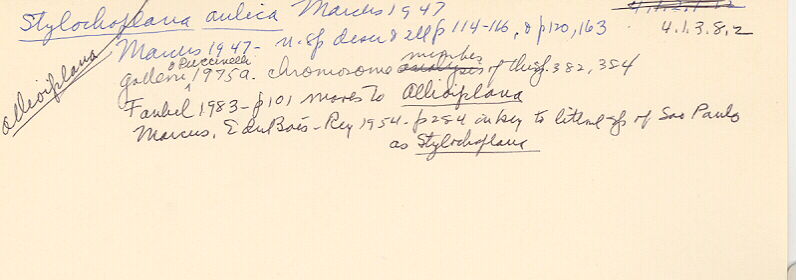 Stylochoplana aulica Marcus 1947 4.1.2.1.82
4.1.3.8.2
Marcus 1947- n.sp descr & ill p 114-116, & p 120, 163
Galleni & Puccinelli 1975a. chromosome number analysis of this p. 382, 384
Faubel 1983- p 101 moves to Allioiplana
Marcus, E du Bois-Rey 1954- p 284 in key to littoral sp of Sao Paulo
as Stylochoplana
Allioiplana